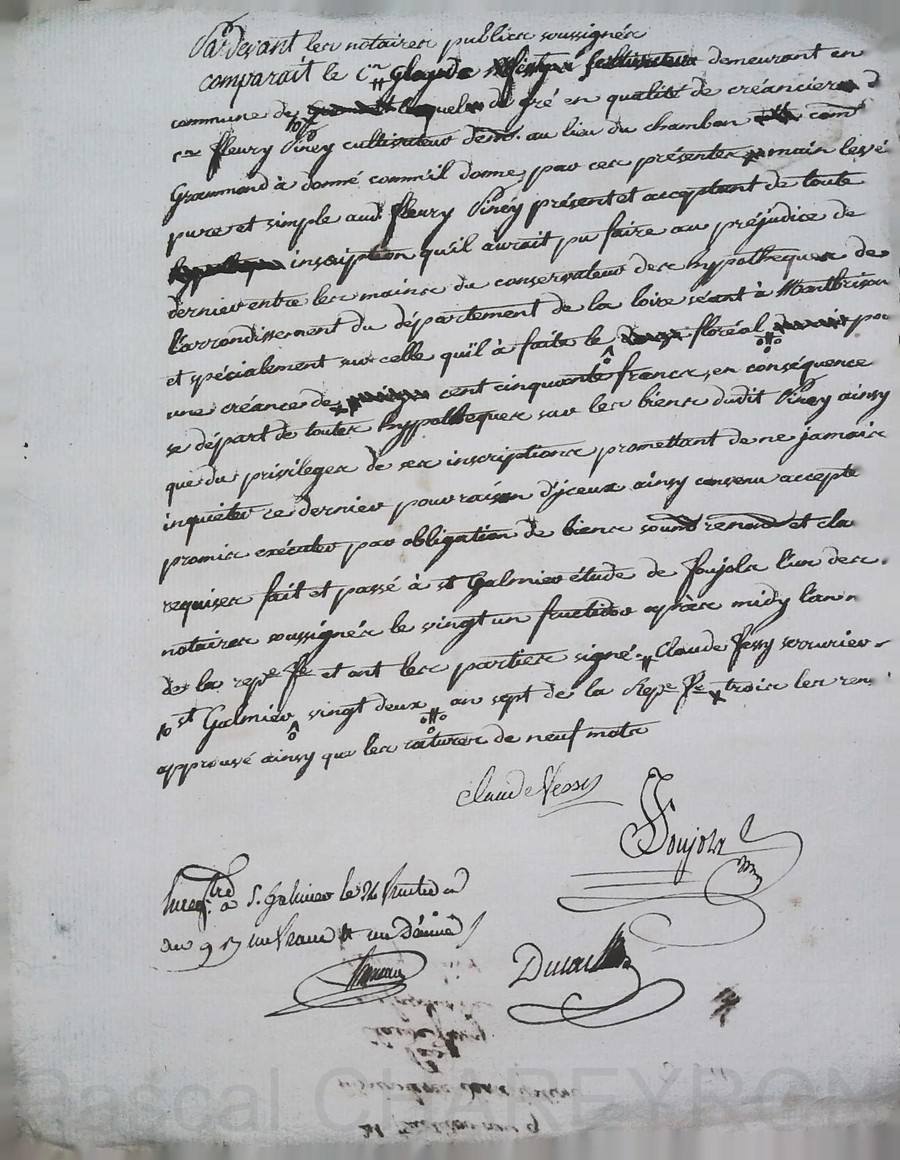 Pardevant les notaires publics soussignés
comparait le Cn demeurant en
commune de lequel de gré en qualité de créancier d
cn fleury Piney cultivateur demt. au lieu du chambon com
Grammond à donné comm'il donne par ces présentes main levé
pure et simple aud. fleury Piney présent et acceptant de toute
inscription qu'il aurait pu faire au préjudice de
dernier entre les mains du conservateur des hypotheques de
l'arrondissement du département de la loire séant à Montbrison
et spécialement sur celle qu'il à faite le floréal pou
une créance de cent cinquante francs, en conséquence
se départ de toutes hypotheques sur les biens dudit Piney ainsy
que du privileges de ses inscriptions promettant de ne jamais
inquieter ce dernier pour raison d'yceux ainsy convenu accepte
promis exécuter par obligation de biens soumd renond et cla
requises fait et passé à st Galmier étude de Soujols l'un des
notaires soussignés le vingt un fructidor après midy l'an
de la repe fse et ont les parties signé. Claude Jessy serrurier
st Galmier vingt deux an sept de la Repe fse trois les ren
approuvé ainsy que les ratures de neuf mots
Claude Jessy
Soujols
Enregtré à S. Galmier le 24 fructid
an 7 un franc un décime
Pascal CHAREYRON